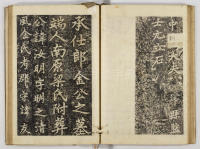 士元立石
承仕郎金公之墓
端人南原梁氏附葬
公諱汝明字明之清
風金氏考郡守諱友